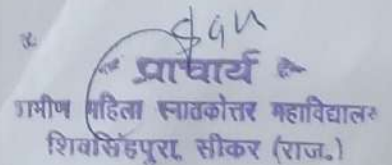 प्राचार्य
ग्रामीण महिला स्नातकोत्तर महाविद्यालय
शिवसिंहपुरा, सीकर (राज.)